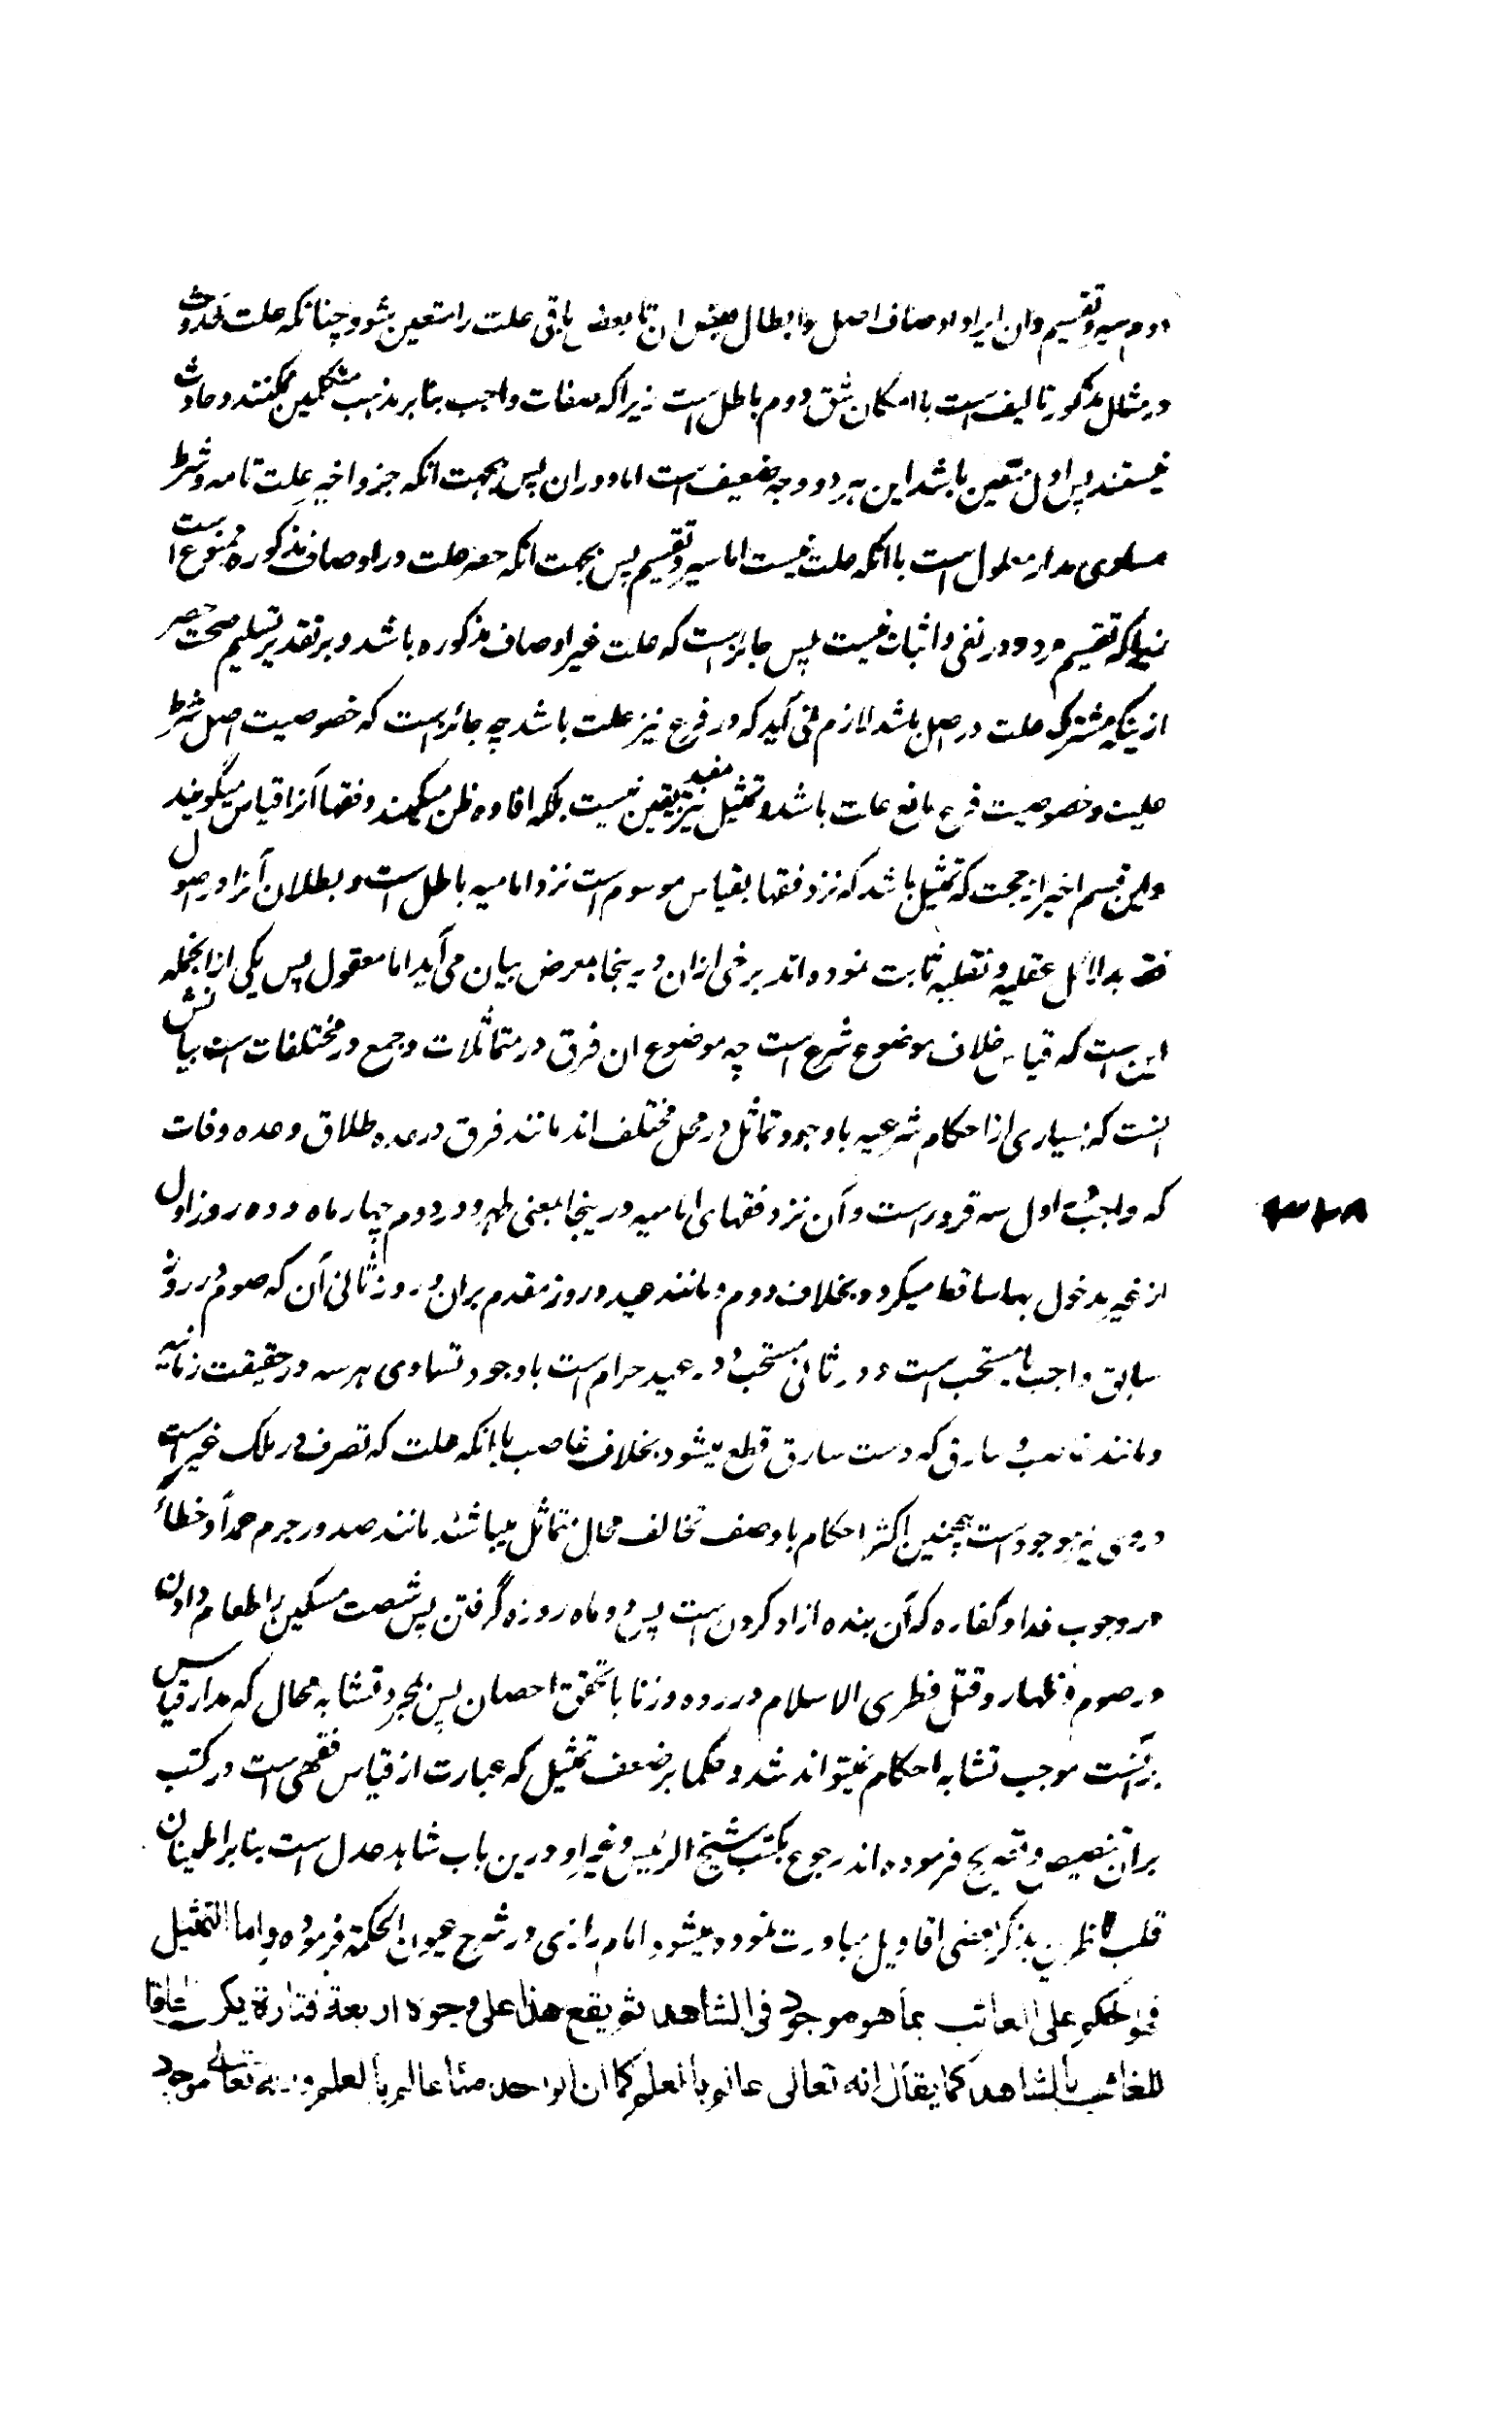 دوم سبر و تقسیم و ان ایراد اوصاف اصل و ابطال بعض ان تا بعض باقی علت را متعین بشود چنانکه علت حدوث
در مثال مذکور تالیف است با امکان شق دوم باطل است زیرا که صفات واجب بنا بر مذهب متکلمین ممکنند و حادث
نیستند پس اول متعین باشد این هر دو وجه ضعیف است اما دوران پس بجهت انکه جزو اخیر علت تامه و شرط
مساوی مدار معلول است با انکه علت نیست اما سبر و تقسیم پس بجهت انکه حصر علت در اوصاف مذکوره ممنوع است
زیرا که تقسیم مردود در نفی و اثبات نیست پس جائز است که علت غیر اوصاف مذکوره باشد و بر تقدیر تسلیم صحت حصر
ازینکه مشترک علت در اصل باشد لازم نمی آید که در فرع نیز علت باشد چه جائز است که خصوصیت اصل شرط
علیت و خصوصیت فرع مانع علت باشد و تمثیل نیز مفید یقین نیست بلکه افاده ظن میکند و فقها آنرا قیاس میگویند
و این قسم اخیر از حجت که تمثیل باشد که نزد فقها بقیاس موسوم است نزد امامیه باطل است و بطلان آنرا در اصول
فقه بدلائل عقلیه و نقلیه ثابت نموده اند برخی از ان درینجا بمعرض بیان می آید اما معقول پس یکی ازانجمله
این است که قیاس خلاف موضوع شرع است چه موضوع ان فرق در متماثلات و جمع در مختلفات است بیانش
انست که بسیاری از احکام شرعیه باوجود تماثل در محل مختلف اند مانند فرق در عده طلاق و عده وفات
که واجب در اول سه قرور است و آن نزد فقهای امامیه درینجا بمعنی طهر و در دوم چهار ماه و ده روز اول
از غیر مدخول بها ساقط میگردد بخلاف دوم و مانند عید و روز مقدم بران و روز ثانی آن که صوم در روز
سابق واجب یا مستحب است و در ثانی مستحب و در عید حرام است باوجود تساوی هر سه در حقیقت زمانیه
و مانند غاصب و سارق که دست سارق قطع میشود بخلاف غاصب با انکه علت که تصرف در ملک غیر است
در وی نیز موجود است همچنین اکثر احکام با وصف تخالف محال متماثل میباشند مانند صدور جرم عمداً و خطاءً
در وجوب فدا و کفاره که آن بنده ازاد کردن است پس دو ماه روزه گرفتن پس شصت مسکین را طعام دادن
در صوم و ظهار و قتل فطری الاسلام در رده و زنا با تحقق احصان پس بمجرد تشابه محال که مدار قیاس
برآنست موجب تشابه احکام نمیتواند شد و حکما بر ضعف تمثیل که عبارت از قیاس فقهی است در کتب
بران تنصیص و تصریح فرموده اند رجوع بکتب شیخ الرئیس و غیر او درین باب شاهد عدل است بنا بر اطمینان
قلب ناظرین بذکر بعضی اقاویل مبادرت نموده میشود امام رازی در شرح عیون الحکمة فرموده و اما التمثیل
فهو الحکم علی الغائب بما هو موجود فی الشاهد ثم یقع هذا علی وجوه اربعة فتارة یکون الحاقا
للغائب بالشاهد کما یقال انه تعالی عالم بالعلم کما ان الواحد منا عالم بالعلم و انه تعالی موجود
۳۲۸